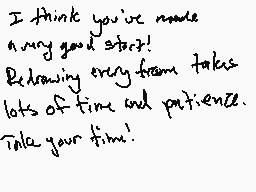 I think you've made
a very good start!
Redrawing every frame takes
lots of time and patience.
Take your time!